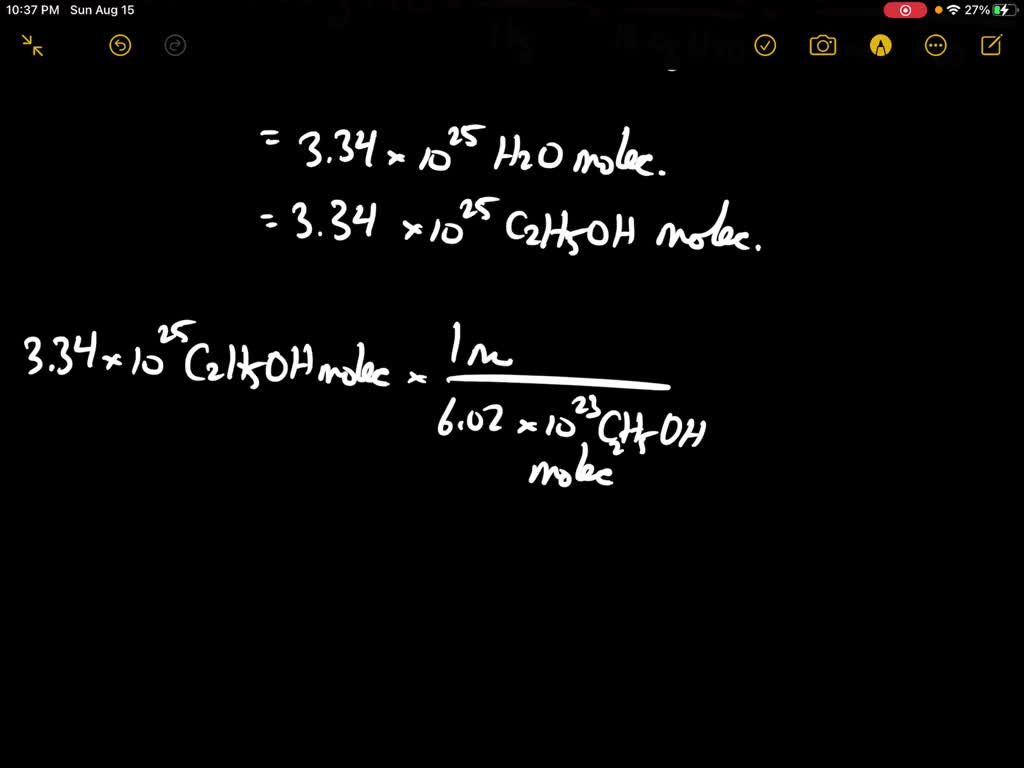 10:37 PM Sun Aug 15 27%
= 3.34 × 10²⁵ H₂O molec.
= 3.34 × 10²⁵ C₂H₅OH molec.
3.34 × 10²⁵ C₂H₅OH molec × 1 m
6.02 × 10²³ C₂H₅OH
molec